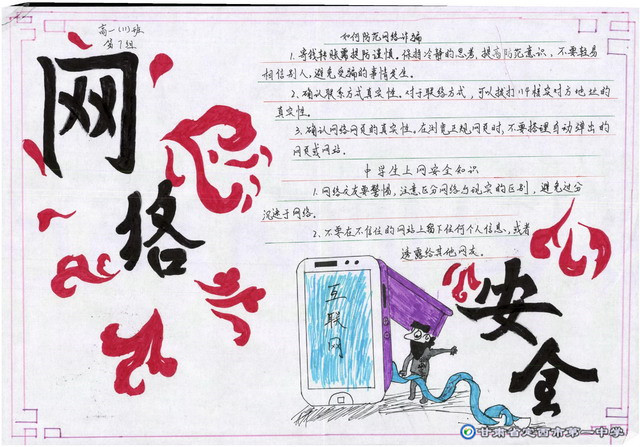 高一(11)班
第7组
网络
安全
如何防范网络诈骗
1.寄钱转账需提防谨慎，保持冷静的思考，提高防范意识，不要轻易
相信别人，避免受骗的事情发生。
2.确认联系方式真实性。对于联络方式，可以拨打114核实对方地址的
真实性。
3.确认网络网页的真实性。在浏览正规网页时，不要搭理自动弹出的
网页或网站。
中学生上网安全知识
1.网络交友要警惕，注意区分网络与现实的区别，避免过分
沉迷于网络。
2.不要在不信任的网站上留下任何个人信息，或者
透露给其他网友。
互联网
甘肃省定西市第一中学